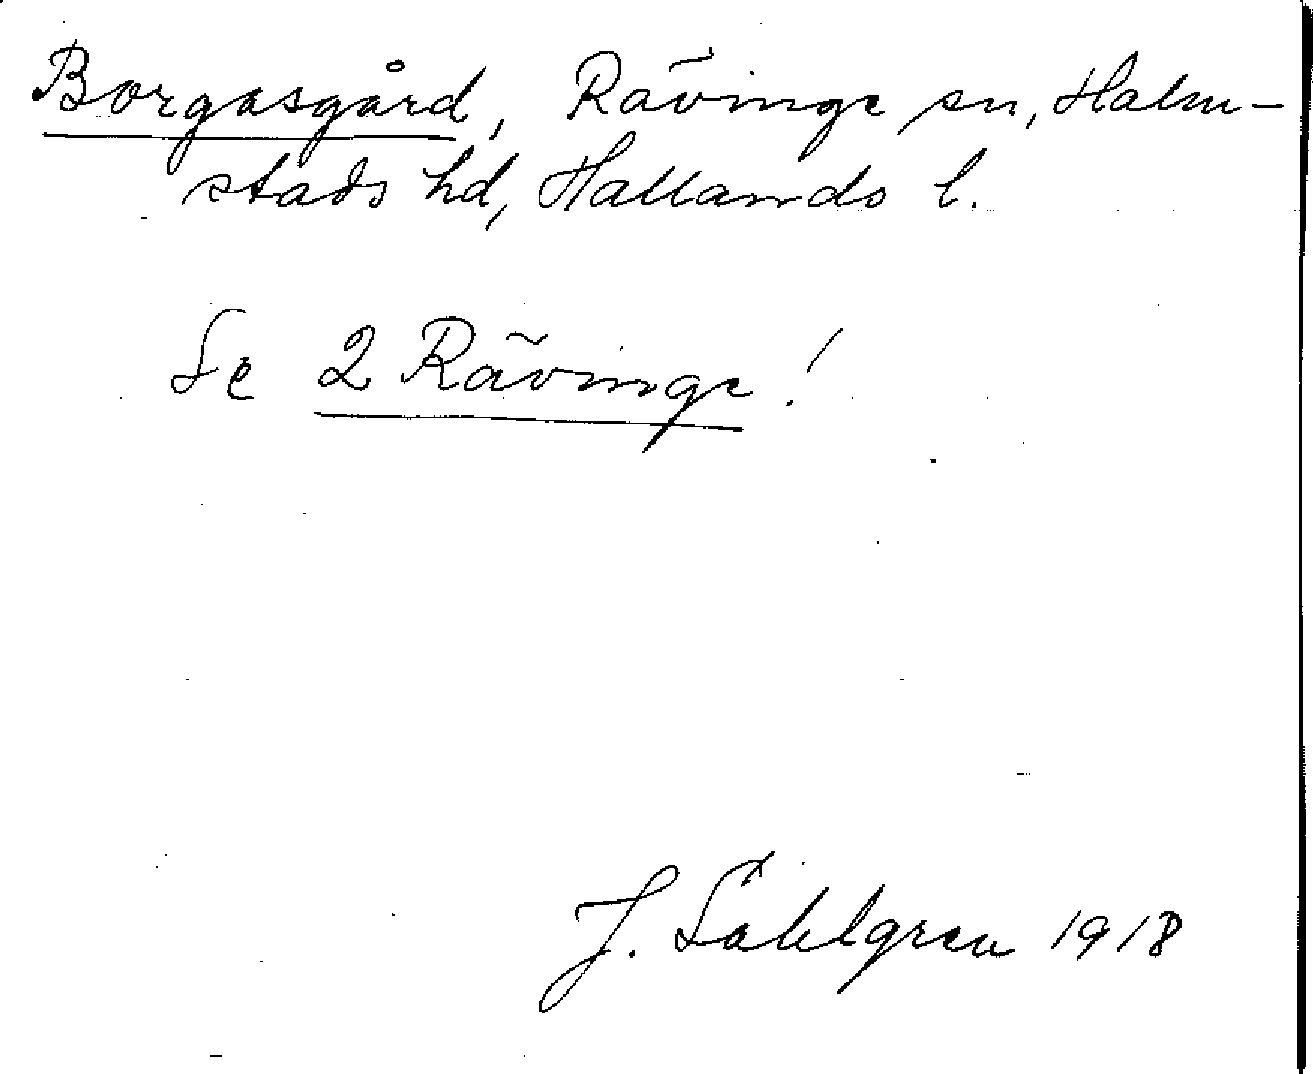 Borgasgård, Rävinge sn, Halm-
stads hd, Hallands l.
Se 2 Rävinge!
J. Sahlgren 1918